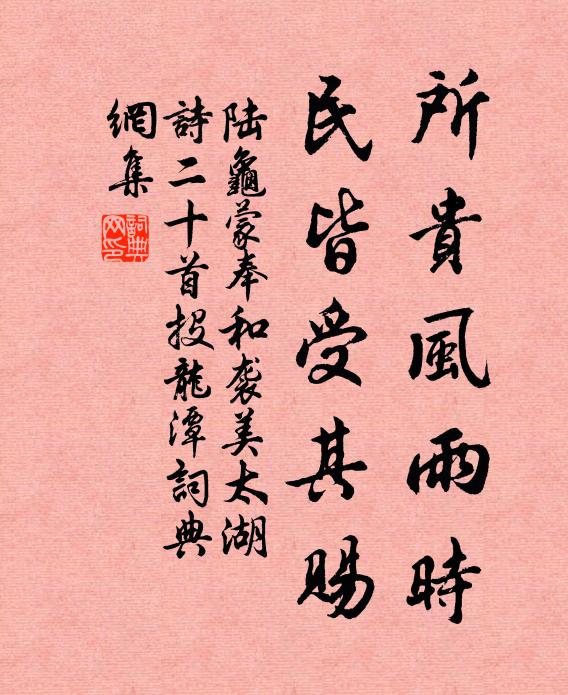 所貴風雨時
民皆受其賜
陆龜蒙奉和袭美太湖
詩二十首投龍潭詞典
網集
詞典
网印